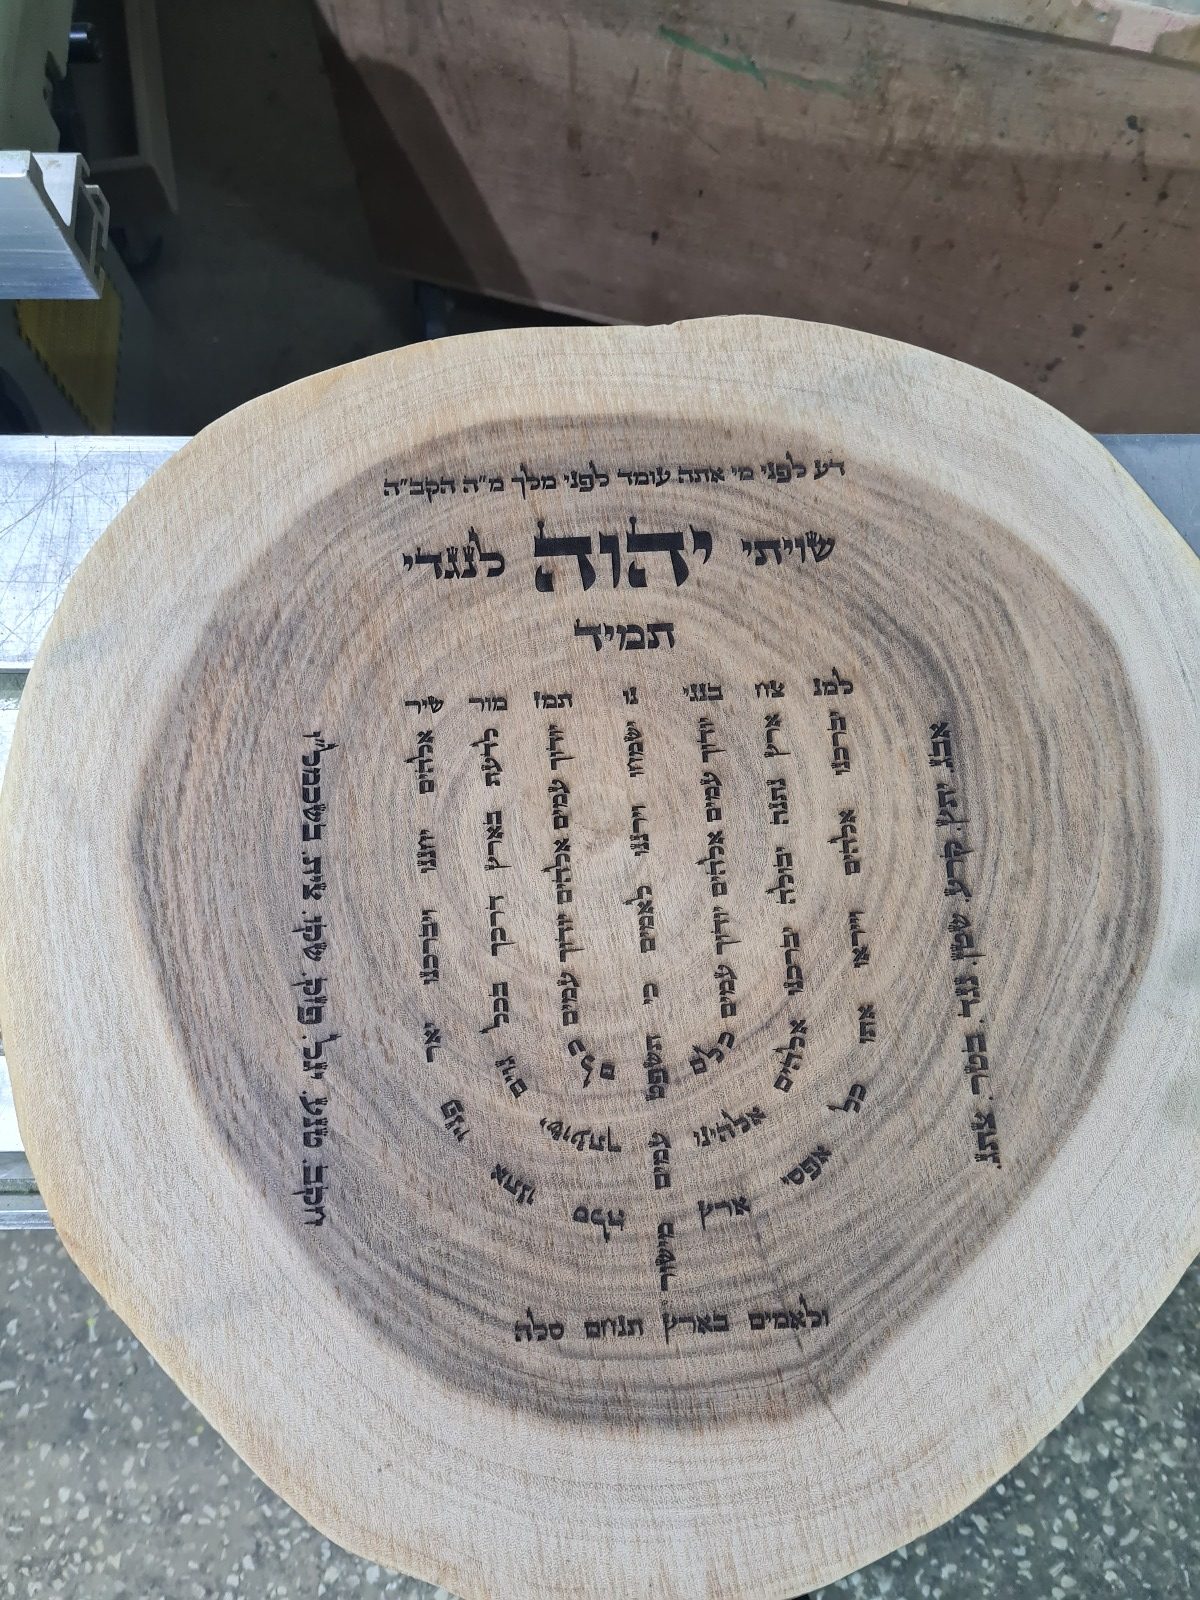 דע לפני מי אתה עומד לפני מלך מ"ה הקב"ה
שויתי יהוה לנגדי
תמיד
למנ צח בנגי נו תמז מור שיר
אלהים יחננו ויברכנו יאר פניו אתנו סלה
לדעת בארץ דרכך בכל גוים ישועתך
יודוך עמים אלהים יודוך עמים כלם
ישמחו וירננו לאמים כי תשפט עמים מישור
יודוך עמים אלהים יודוך עמים כלם
ארץ נתנה יבולה יברכנו אלהים אלהינו
יברכנו אלהים וייראו אתו כל אפסי ארץ
ולאמים בארץ תנחם סלה
אבג. יתץ. קרע. שטן. נגד. בטר צתג.
חקב. טנע. יגל. פזק. שקו. צית. בשכמל"ו